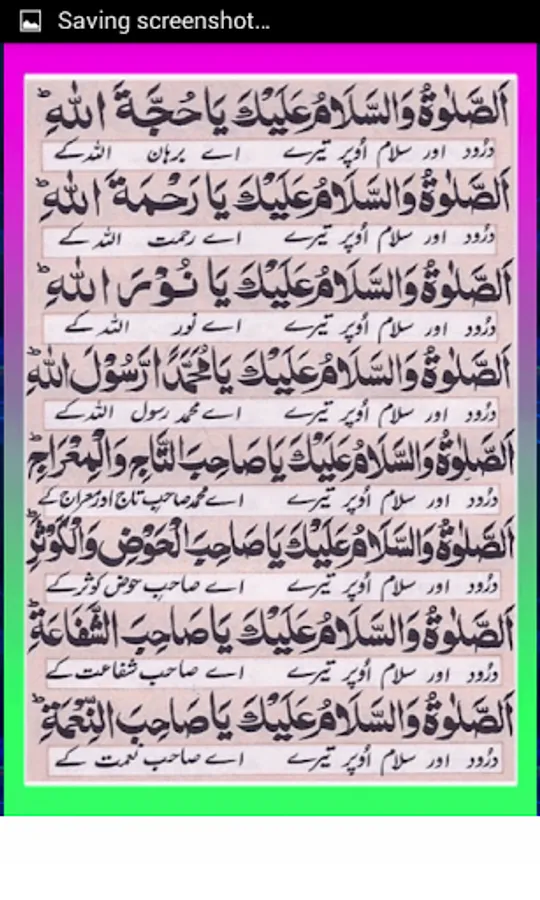 Saving screenshot...
اَلصَّلٰوةُ وَالسَّلَامُ عَلَيْكَ يَا حُجَّةَ اللهِ ؕ
درُود اور سلام اُوپر تیرے اے برہان اللہ کے
اَلصَّلٰوةُ وَالسَّلَامُ عَلَيْكَ يَا رَحْمَةَ اللهِ ؕ
درُود اور سلام اُوپر تیرے اے رحمت اللہ کے
اَلصَّلٰوةُ وَالسَّلَامُ عَلَيْكَ يَا نُوْرَ اللهِ ؕ
درُود اور سلام اُوپر تیرے اے نور اللہ کے
اَلصَّلٰوةُ وَالسَّلَامُ عَلَيْكَ يَا مُحَمَّدًا رَّسُوْلَ اللهِ ؕ
درُود اور سلام اُوپر تیرے اے محمد رسول اللہ کے
اَلصَّلٰوةُ وَالسَّلَامُ عَلَيْكَ يَا صَاحِبَ التَّاجِ وَالْمِعْرَاجِ ؕ
درُود اور سلام اُوپر تیرے اے محمد صاحب تاج اور معراج کے
اَلصَّلٰوةُ وَالسَّلَامُ عَلَيْكَ يَا صَاحِبَ الْحَوْضِ وَالْكَوْثَرِ ؕ
درُود اور سلام اُوپر تیرے اے صاحب حوض کوثر کے
اَلصَّلٰوةُ وَالسَّلَامُ عَلَيْكَ يَا صَاحِبَ الشَّفَاعَةِ ؕ
درُود اور سلام اُوپر تیرے اے صاحب شفاعت کے
اَلصَّلٰوةُ وَالسَّلَامُ عَلَيْكَ يَا صَاحِبَ النِّعْمَةِ ؕ
درُود اور سلام اُوپر تیرے اے صاحب نعمت کے